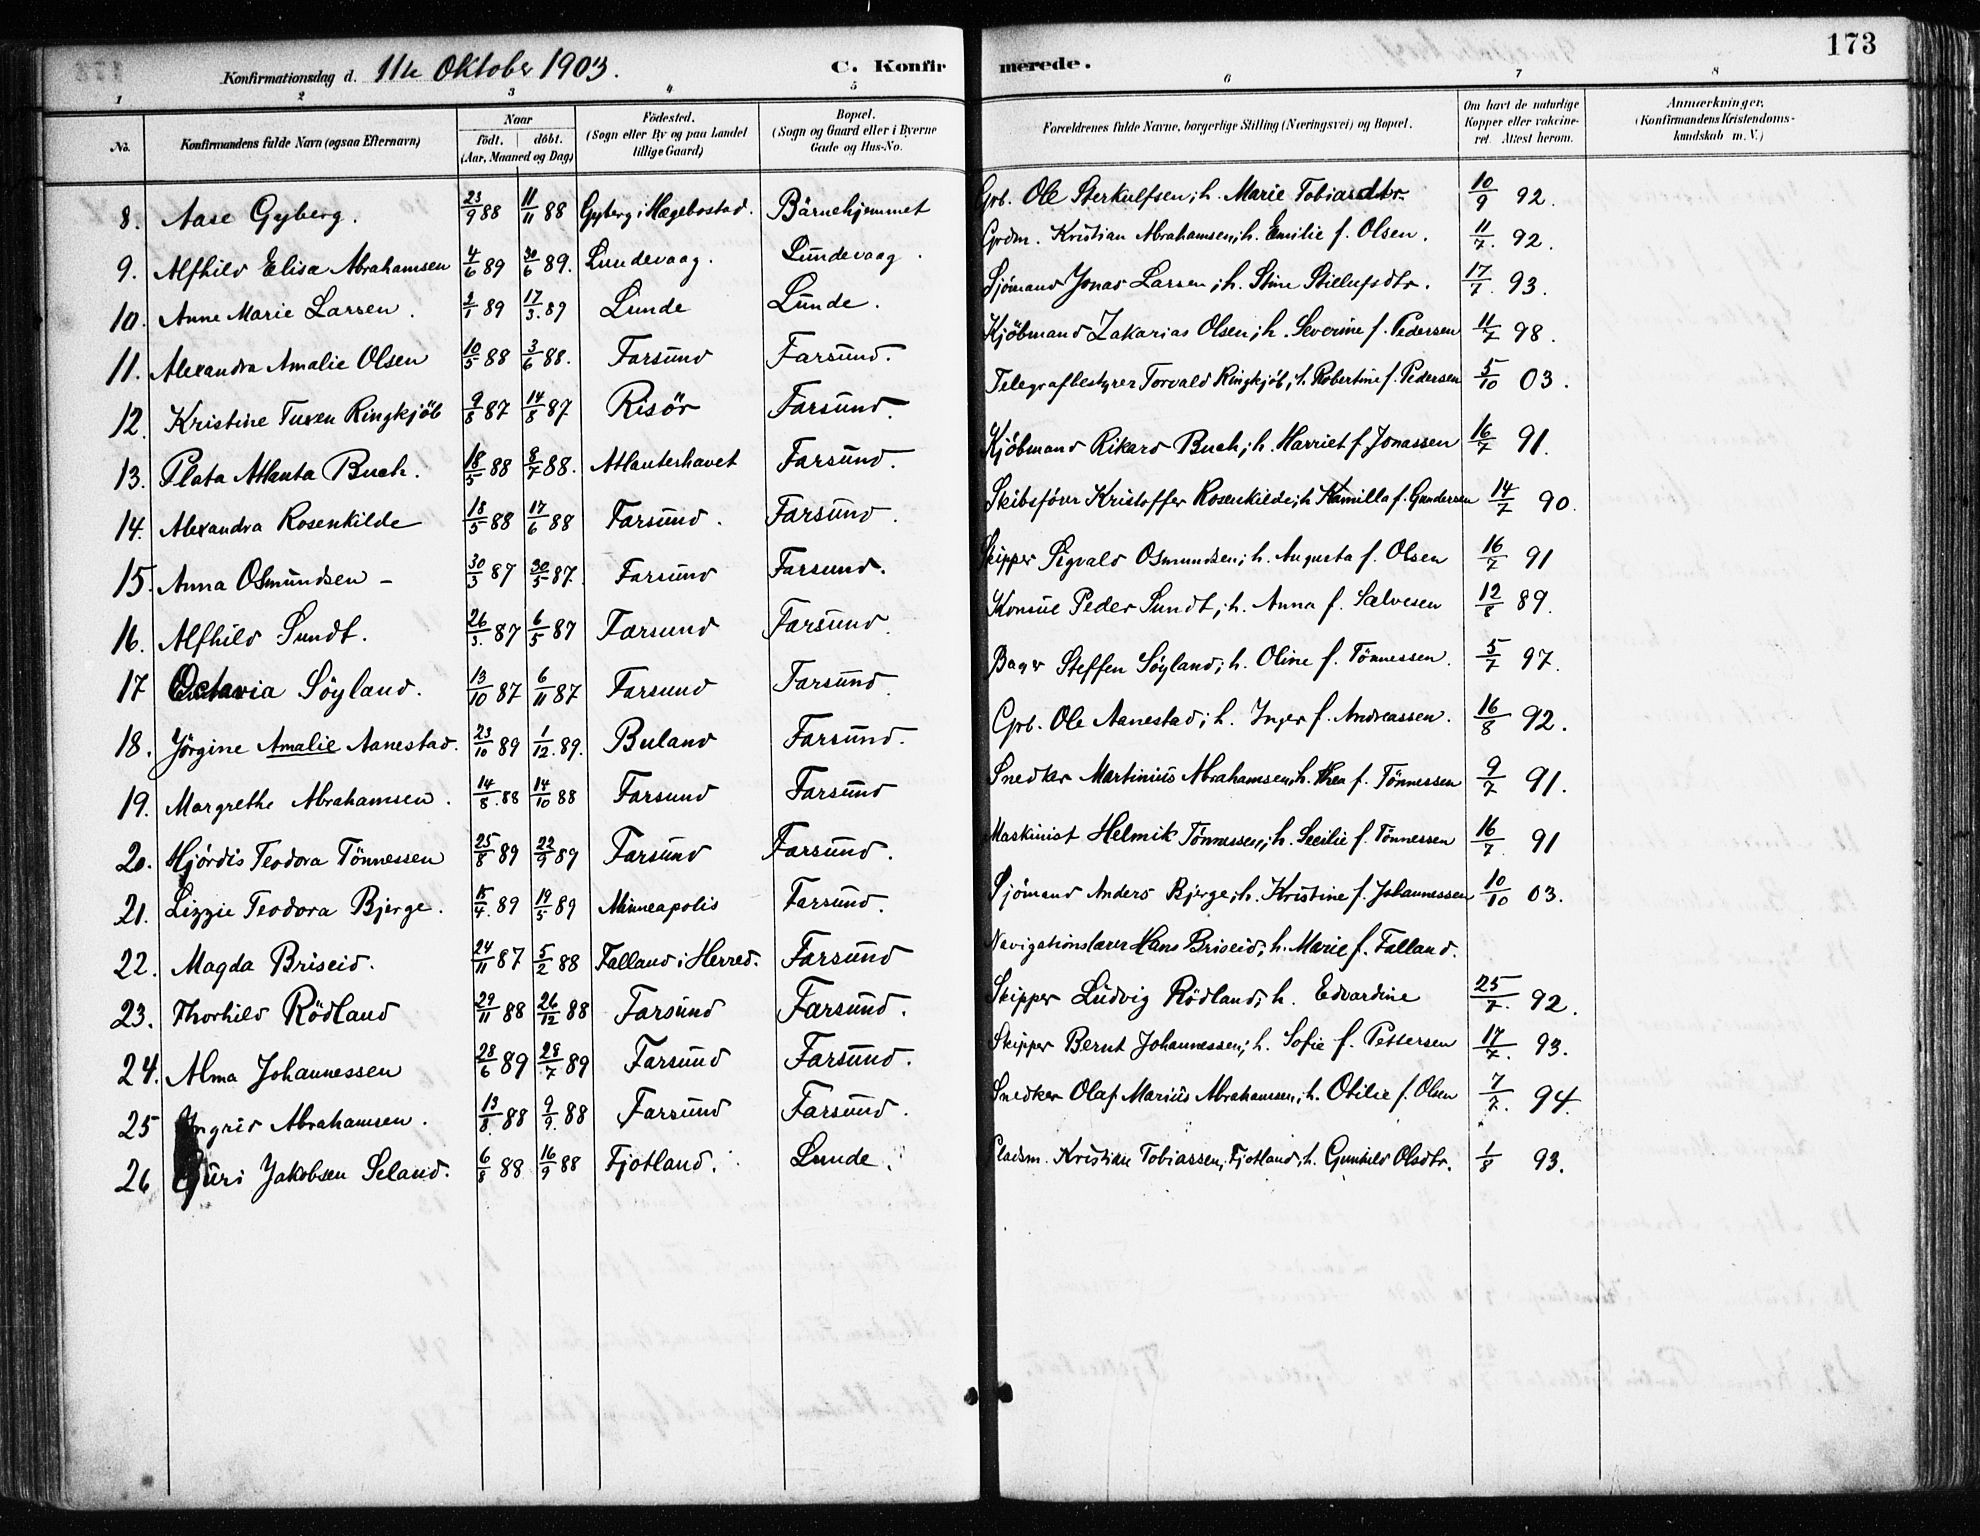 173
Konfirmationsdag d. 11te Oktober 1903. C. Konfirmerede.
1 2 3 4 5 6 7 8
No. Konfirmandens fulde Navn (ogsaa Efternavn) Naar født. døbt. (Aar, Maaned og Dag) Fødested. (Sogn eller By og paa Landet tillige Gaard) Bopæl. (Sogn og Gaard eller i Byerne Gade og Hus-No. Forældrenes fulde Navne, borgerlige Stilling (Næringsvei) og Bopæl. Om havt de naturlige Kopper eller vaccineret. Attest herom. Anmærkninger. (Konfirmandens Kristendomskundskab m. V.)
8. Aase Gyberg. 23/9 88 11/11 88 Gyberg i Hægebostad. Börnehjemmet Grb. Ole Sterkulfsen; h. Marie Tobiasdtr. 10/9 92.
9. Alfhild Elisa Abrahamsen 4/6 89 30/6 89. Lundevaag. Lundevaag. Grdm. Kristian Abrahamsen; h. Emilie f. Olsen. 11/7. 92.
10. Anne Marie Larsen. 2/1 89 17/3. 89 Lunde Lunde. Sjömand Jonas Larsen; h. Stine Stillufsdtr. 17/7. 93.
11. Alexandra Amalie Olsen 10/5 88 3/6 88. Farsund Farsund. Kjöbmand Zakarias Olsen; h. Severine f. Pedersen 11/7 98.
12. Kristine Tuxen Ringkjöb 9/8 87 14/8 87 Risör Farsund. Telegrafbestyrer Torvald Ringkjöb; h. Robertine f. Pedersen 5/10 03.
13. Plata Atlanta Buch. 18/5 88 8/7 88. Atlanterhavet Farsund. Kjöbmand Rikard Buch; h. Harriet f. Jonassen 16/7 91.
14. Alexandra Rosenkilde 18/5 88 17/6 88 Farsund. Farsund. Skibsförer Kristoffer Rosenkilde; h. Kamilla f. Gundersen 14/7 90.
15. Anna Osmundsen - 30/3 87 30/5 87. Farsund Farsund. Skipper Sigvald Osmundsen; h. Augusta f. Olsen 16/7 91
16. Alfhild Sundt. 26/3. 87 6/5 87 Farsund Farsund. Konsul Peder Sundt; h. Anna f. Salvesen 12/8 89.
17 Octavia Söyland. 13/10 87 6/11 87 Farsund Farsund. Bager Steffen Söyland; h. Oline f. Tönnessen. 5/7 97.
18. Jörgine Amalie Aanestad. 23/10 89 1/12. 89. Buland Farsund. Grb. Ole Aanestad; h. Inger f. Andreassen. 16/8 92.
19. Margrethe Abrahamsen. 14/8. 88 14/10 88 Farsund Farsund Snedker Martinius Abrahamsen; h. Thea f. Tönnessen 9/7 91.
20. Hjördis Teodora Tönnessen 25/8 89 22/9 89 Farsund Farsund. Maskinist Helmik Tönnessen; h. Secilie f. Tönnessen 16/7. 91
21. Lizzie Teodora Bjerge. 15/4. 89 19/5 89 Minneapolis Farsund. Sjömand Anders Bjerge; h. Kristine f. Johannessen 10/10 03.
22. Magda Briseid. 24/11 87 5/2 88 Falland i Herred. Farsund Navigationslærer Hans Briseid; h. Marie f. Falland.
23. Thorhild Rödland 29/11 88 26/12 88 Farsund Farsund. Skipper Ludvig Rödland; h. Edvardine 25/7. 92.
24. Alma Johannessen 28/6 89 28/7 89 Farsund Farsund. Skipper Bernt Johannessen; h. Sofie f. Pettersen 17/7. 93.
25 Ingrid Abrahamsen. 13/8 88 9/9. 88 Farsund Farsund. Snedker Olaf Marius Abrahamsen; h. Otilie f. Olsen 7/7. 94.
26 Guri Jakobsen Seland. 6/8 88 16/9 88 Fjotland. Lunde. Pladsm. Kristian Tobiassen, Fjotland; h. Gunhild Olsdtr. 1/8 93.